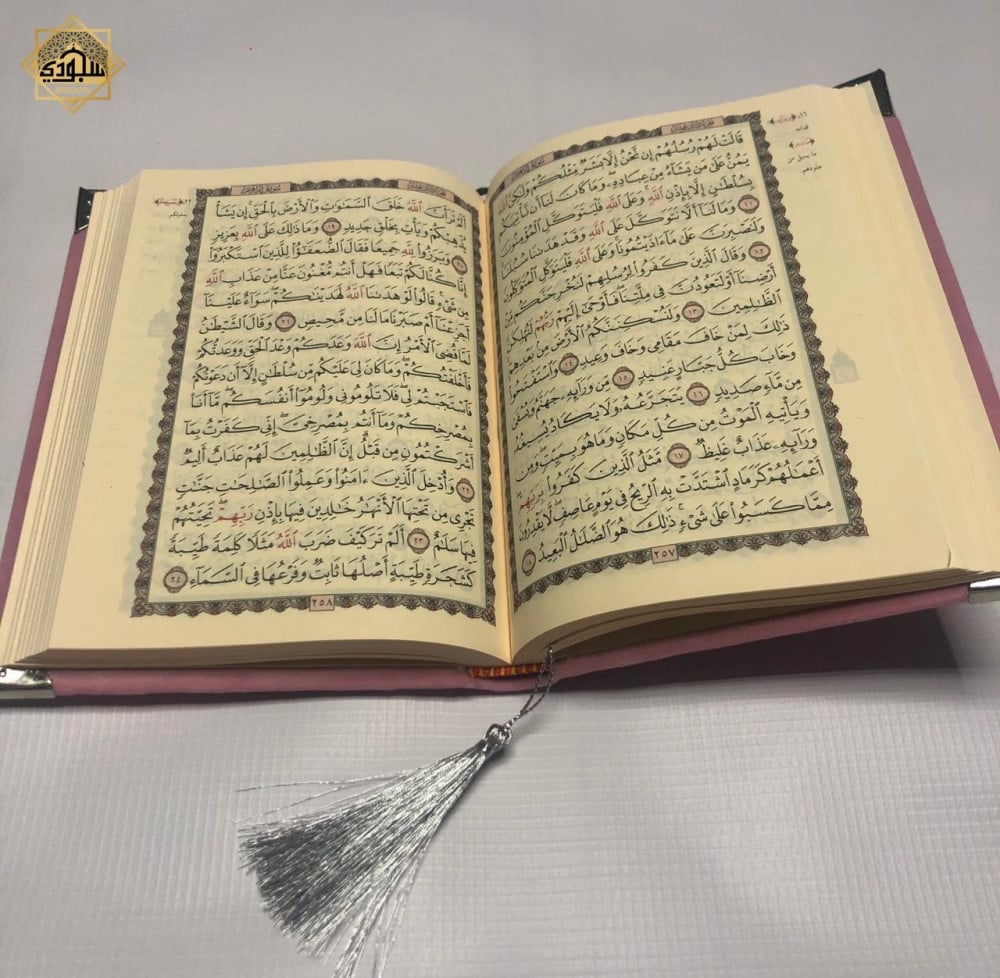 سجودي
SOJOUD
قَالَتْ لَهُمْ رُسُلُهُمْ إِن نَّحْنُ إِلَّا بَشَرٌ مِّثْلُكُمْ وَلَٰكِنَّ ٱللَّهَ
يَمُنُّ عَلَىٰ مَن يَشَآءُ مِنْ عِبَادِهِۦ ۖ وَمَا كَانَ لَنَآ أَن نَّأْتِيَكُم
بِسُلْطَٰنٍ إِلَّا بِإِذْنِ ٱللَّهِ ۚ وَعَلَى ٱللَّهِ فَلْيَتَوَكَّلِ ٱلْمُؤْمِنُونَ
١١ وَمَا لَنَآ أَلَّا نَتَوَكَّلَ عَلَى ٱللَّهِ وَقَدْ هَدَىٰنَا سُبُلَنَا ۚ
وَلَنَصْبِرَنَّ عَلَىٰ مَآ ءَاذَيْتُمُونَا ۚ وَعَلَى ٱللَّهِ فَلْيَتَوَكَّلِ ٱلْمُتَوَكِّلُونَ
١٢ وَقَالَ ٱلَّذِينَ كَفَرُوا۟ لِرُسُلِهِمْ لَنُخْرِجَنَّكُم مِّنْ
أَرْضِنَآ أَوْ لَتَعُودُنَّ فِى مِلَّتِنَا ۖ فَأَوْحَىٰٓ إِلَيْهِمْ رَبُّهُمْ لَنُهْلِكَنَّ
ٱلظَّٰلِمِينَ ١٣ وَلَنُسْكِنَنَّكُمُ ٱلْأَرْضَ مِنۢ بَعْدِهِمْ ۚ
ذَٰلِكَ لِمَنْ خَافَ مَقَامِى وَخَافَ وَعِيدِ ١٤ وَٱسْتَفْتَحُوا۟
وَخَابَ كُلُّ جَبَّارٍ عَنِيدٍ ١٥ مِّن وَرَآئِهِۦ جَهَنَّمُ وَيُسْقَىٰ
مِن مَّآءٍ صَدِيدٍ ١٦ يَتَجَرَّعُهُۥ وَلَا يَكَادُ يُسِيغُهُۥ
وَيَأْتِيهِ ٱلْمَوْتُ مِن كُلِّ مَكَانٍ وَمَا هُوَ بِمَيِّتٍ ۖ وَمِن
وَرَآئِهِۦ عَذَابٌ غَلِيظٌ ١٧ مَّثَلُ ٱلَّذِينَ كَفَرُوا۟ بِرَبِّهِمْ ۖ
أَعْمَٰلُهُمْ كَرَمَادٍ ٱشْتَدَّتْ بِهِ ٱلرِّيحُ فِى يَوْمٍ عَاصِفٍ ۖ لَّا يَقْدِرُونَ
مِمَّا كَسَبُوا۟ عَلَىٰ شَىْءٍ ۚ ذَٰلِكَ هُوَ ٱلضَّلَٰلُ ٱلْبَعِيدُ ١٨
٢٥٧
أَلَمْ تَرَ أَنَّ ٱللَّهَ خَلَقَ ٱلسَّمَٰوَٰتِ وَٱلْأَرْضَ بِٱلْحَقِّ ۚ إِن يَشَأْ
يُذْهِبْكُمْ وَيَأْتِ بِخَلْقٍ جَدِيدٍ ١٩ وَمَا ذَٰلِكَ عَلَى ٱللَّهِ بِعَزِيزٍ
٢٠ وَبَرَزُوا۟ لِلَّهِ جَمِيعًا فَقَالَ ٱلضُّعَفَٰٓؤُا۟ لِلَّذِينَ ٱسْتَكْبَرُوٓا۟
إِنَّا كُنَّا لَكُمْ تَبَعًا فَهَلْ أَنتُم مُّغْنُونَ عَنَّا مِنْ عَذَابِ ٱللَّهِ
مِن شَىْءٍ ۚ قَالُوا۟ لَوْ هَدَىٰنَا ٱللَّهُ لَهَدَيْنَٰكُمْ ۖ سَوَآءٌ عَلَيْنَآ
أَجَزِعْنَآ أَمْ صَبَرْنَا مَا لَنَا مِن مَّحِيصٍ ٢١ وَقَالَ ٱلشَّيْطَٰنُ
لَمَّا قُضِىَ ٱلْأَمْرُ إِنَّ ٱللَّهَ وَعَدَكُمْ وَعْدَ ٱلْحَقِّ وَوَعَدتُّكُمْ
فَأَخْلَفْتُكُمْ ۖ وَمَا كَانَ لِىَ عَلَيْكُم مِّن سُلْطَٰنٍ إِلَّآ أَن دَعَوْتُكُمْ
فَٱسْتَجَبْتُمْ لِى ۖ فَلَا تَلُومُونِى وَلُومُوٓا۟ أَنفُسَكُم ۖ مَّآ أَنَا۠
بِمُصْرِخِكُمْ وَمَآ أَنتُم بِمُصْرِخِىَّ ۖ إِنِّى كَفَرْتُ بِمَآ
أَشْرَكْتُمُونِ مِن قَبْلُ ۗ إِنَّ ٱلظَّٰلِمِينَ لَهُمْ عَذَابٌ أَلِيمٌ
٢٢ وَأُدْخِلَ ٱلَّذِينَ ءَامَنُوا۟ وَعَمِلُوا۟ ٱلصَّٰلِحَٰتِ جَنَّٰتٍ
تَجْرِى مِن تَحْتِهَا ٱلْأَنْهَٰرُ خَٰلِدِينَ فِيهَا بِإِذْنِ رَبِّهِمْ ۖ تَحِيَّتُهُمْ
فِيهَا سَلَٰمٌ ٢٣ أَلَمْ تَرَ كَيْفَ ضَرَبَ ٱللَّهُ مَثَلًا كَلِمَةً طَيِّبَةً
كَشَجَرَةٍ طَيِّبَةٍ أَصْلُهَا ثَابِتٌ وَفَرْعُهَا فِى ٱلسَّمَآءِ ٢٤
٢٥٨